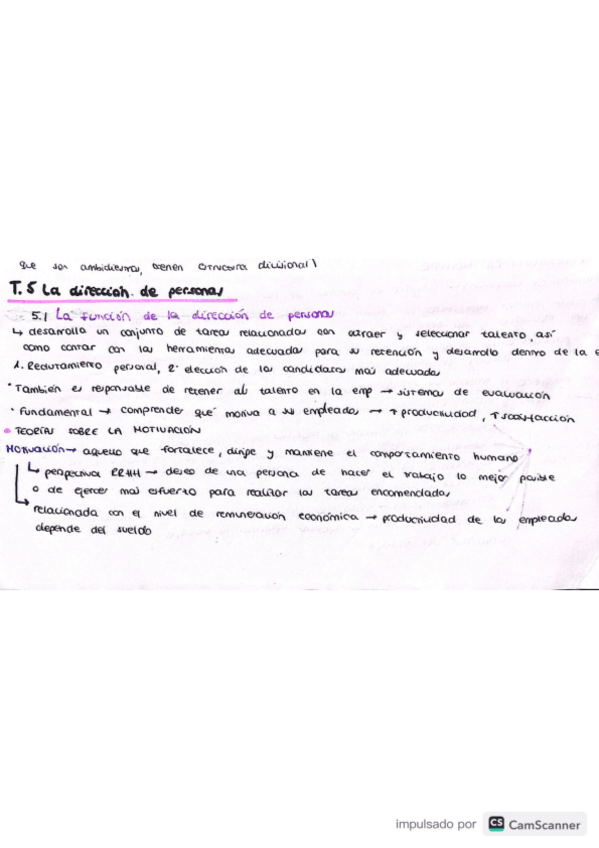 que son ambidiestras, tienen estructura divisional)
T.5 La dirección de personas
5.1 La función de la dirección de personas
↳ desarrolla un conjunto de tareas relacionadas con atraer y seleccionar talento, así
como contar con las herramientas adecuadas para su retención y desarrollo dentro de la e
1. Reclutamiento personal, 2º elección de los candidatos más adecuados
· También es responsable de retener al talento en la emp → sistema de evaluación
· Fundamental → comprender qué motiva a sus empleados → ↑ productividad, ↑ satisfacción
TEORÍAS SOBRE LA MOTIVACIÓN
MOTIVACIÓN → aquello que fortalece, dirige y mantiene el comportamiento humano
↳ perspectiva RRHH → deseo de una persona de hacer el trabajo lo mejor posible
o de ejercer más esfuerzo para realizar las tareas encomendadas
↳ relacionada con el nivel de remuneración económica → productividad de los empleados
depende del sueldo
impulsado por CS CamScanner